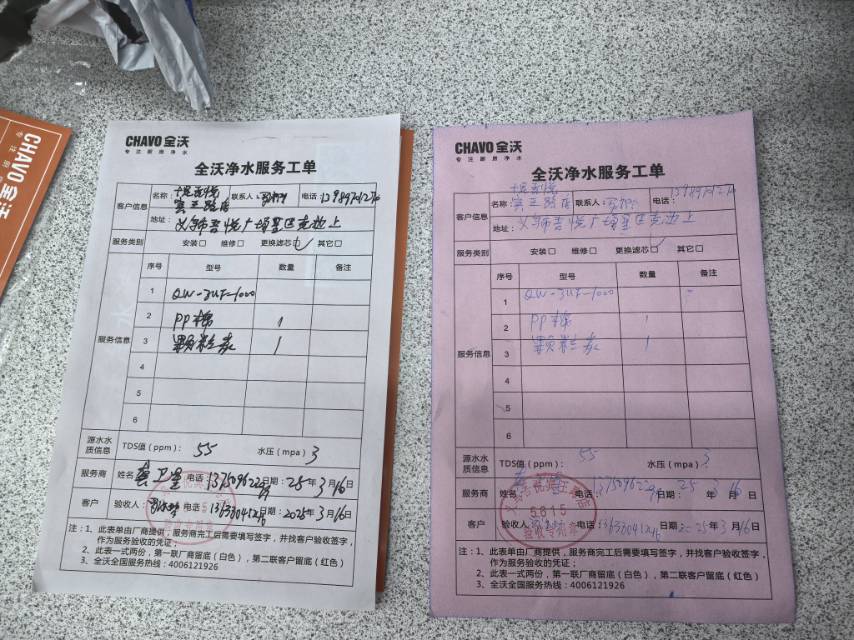 CHAVO全沃
CHAVO全沃
专注厨房净水
全沃净水服务工单
客户信息
名称: 宾王路店 联系人: 电话:
地址: 义乌吾悦广场星巴克边上
服务类别 安装□ 维修□ 更换滤芯☑ 其它□
服务信息
序号 型号 数量 备注
1 QW-3UF-1000
2 PP棉 1
3 颗粒炭 1
4
5
6
源水水质信息 TDS值(ppm): 55 水压(mpa) 3
服务商 姓名 龚卫星 电话: 日期: 25年3月16日
客户 验收人: 电话: 13633041216 日期: 2025年3月16日
注:1、此表单由厂商提供,服务商完工后需要填写签字,并找客户验收签字,
作为服务验收的凭证;
2、此表一式两份,第一联厂商留底(白色),第二联客户留底(红色)
3、全沃全国服务热线:4006121926
CHAVO全沃
专注厨房净水
全沃净水服务工单
客户信息
名称: 宾王路店 联系人: 电话:
地址: 义乌吾悦广场星巴克边上
服务类别 安装□ 维修□ 更换滤芯☑ 其它□
服务信息
序号 型号 数量 备注
1 QW-3UF-1000
2 PP棉 1
3 颗粒炭 1
4
5
6
源水水质信息 TDS值(ppm): 55 水压(mpa): 3
服务商 姓名: 电话: 日期: 25年3月16日
5815
验收专用章
客户 验收人: 电话: 13633041216 日期: 25年3月16日
注:1、此表单由厂商提供,服务商完工后需要填写签字,并找客户验收签字,
作为服务验收的凭证;
2、此表一式两份,第一联厂商留底(白色),第二联客户留底(红色)
3、全沃全国服务热线:4006121926